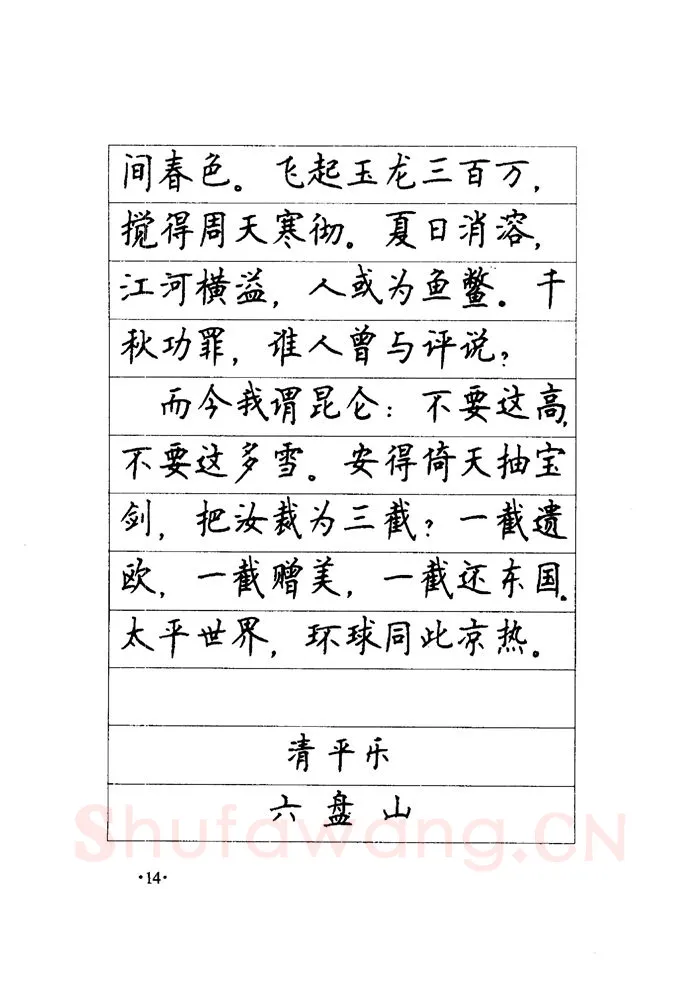 间春色。飞起玉龙三百万，
搅得周天寒彻。夏日消溶，
江河横溢，人或为鱼鳖。千
秋功罪，谁人曾与评说？
而今我谓昆仑：不要这高，
不要这多雪。安得倚天抽宝
剑，把汝裁为三截？一截遗
欧，一截赠美，一截还东国。
太平世界，环球同此凉热。
清平乐
六盘山
Shufawang.CN
·14·